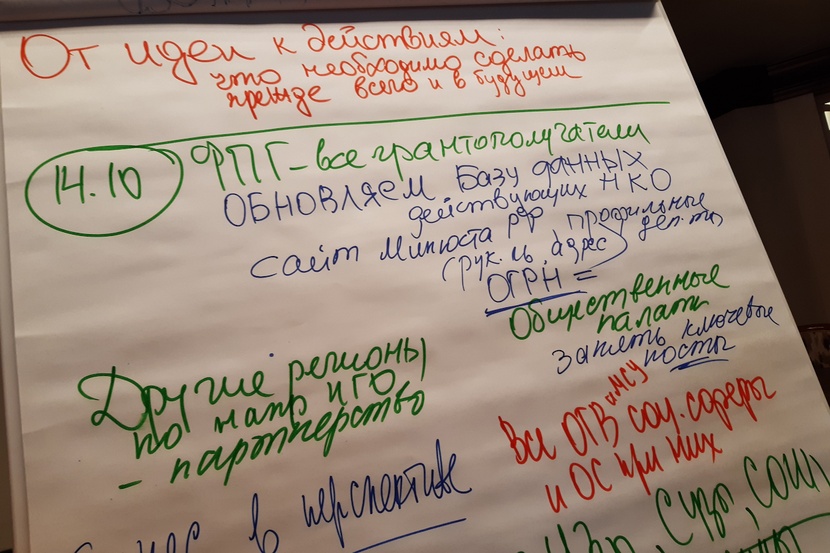 От идеи к действиям:
что необходимо сделать
прежде всего и в будущем
14.10
ФПГ - все грантополучатели
ОБНОВЛЯЕМ Базу данных
действующих НКО
сайт Минюста РФ, профильные
(рук-ль, адрес) деп-ты
ОГРН =
Общественные
палаты
занять ключевые
посты
Другие регионы
по напр
- партнерство
Все ОГВ и МСУ соц. сферы
и ОС при них
в перспективе